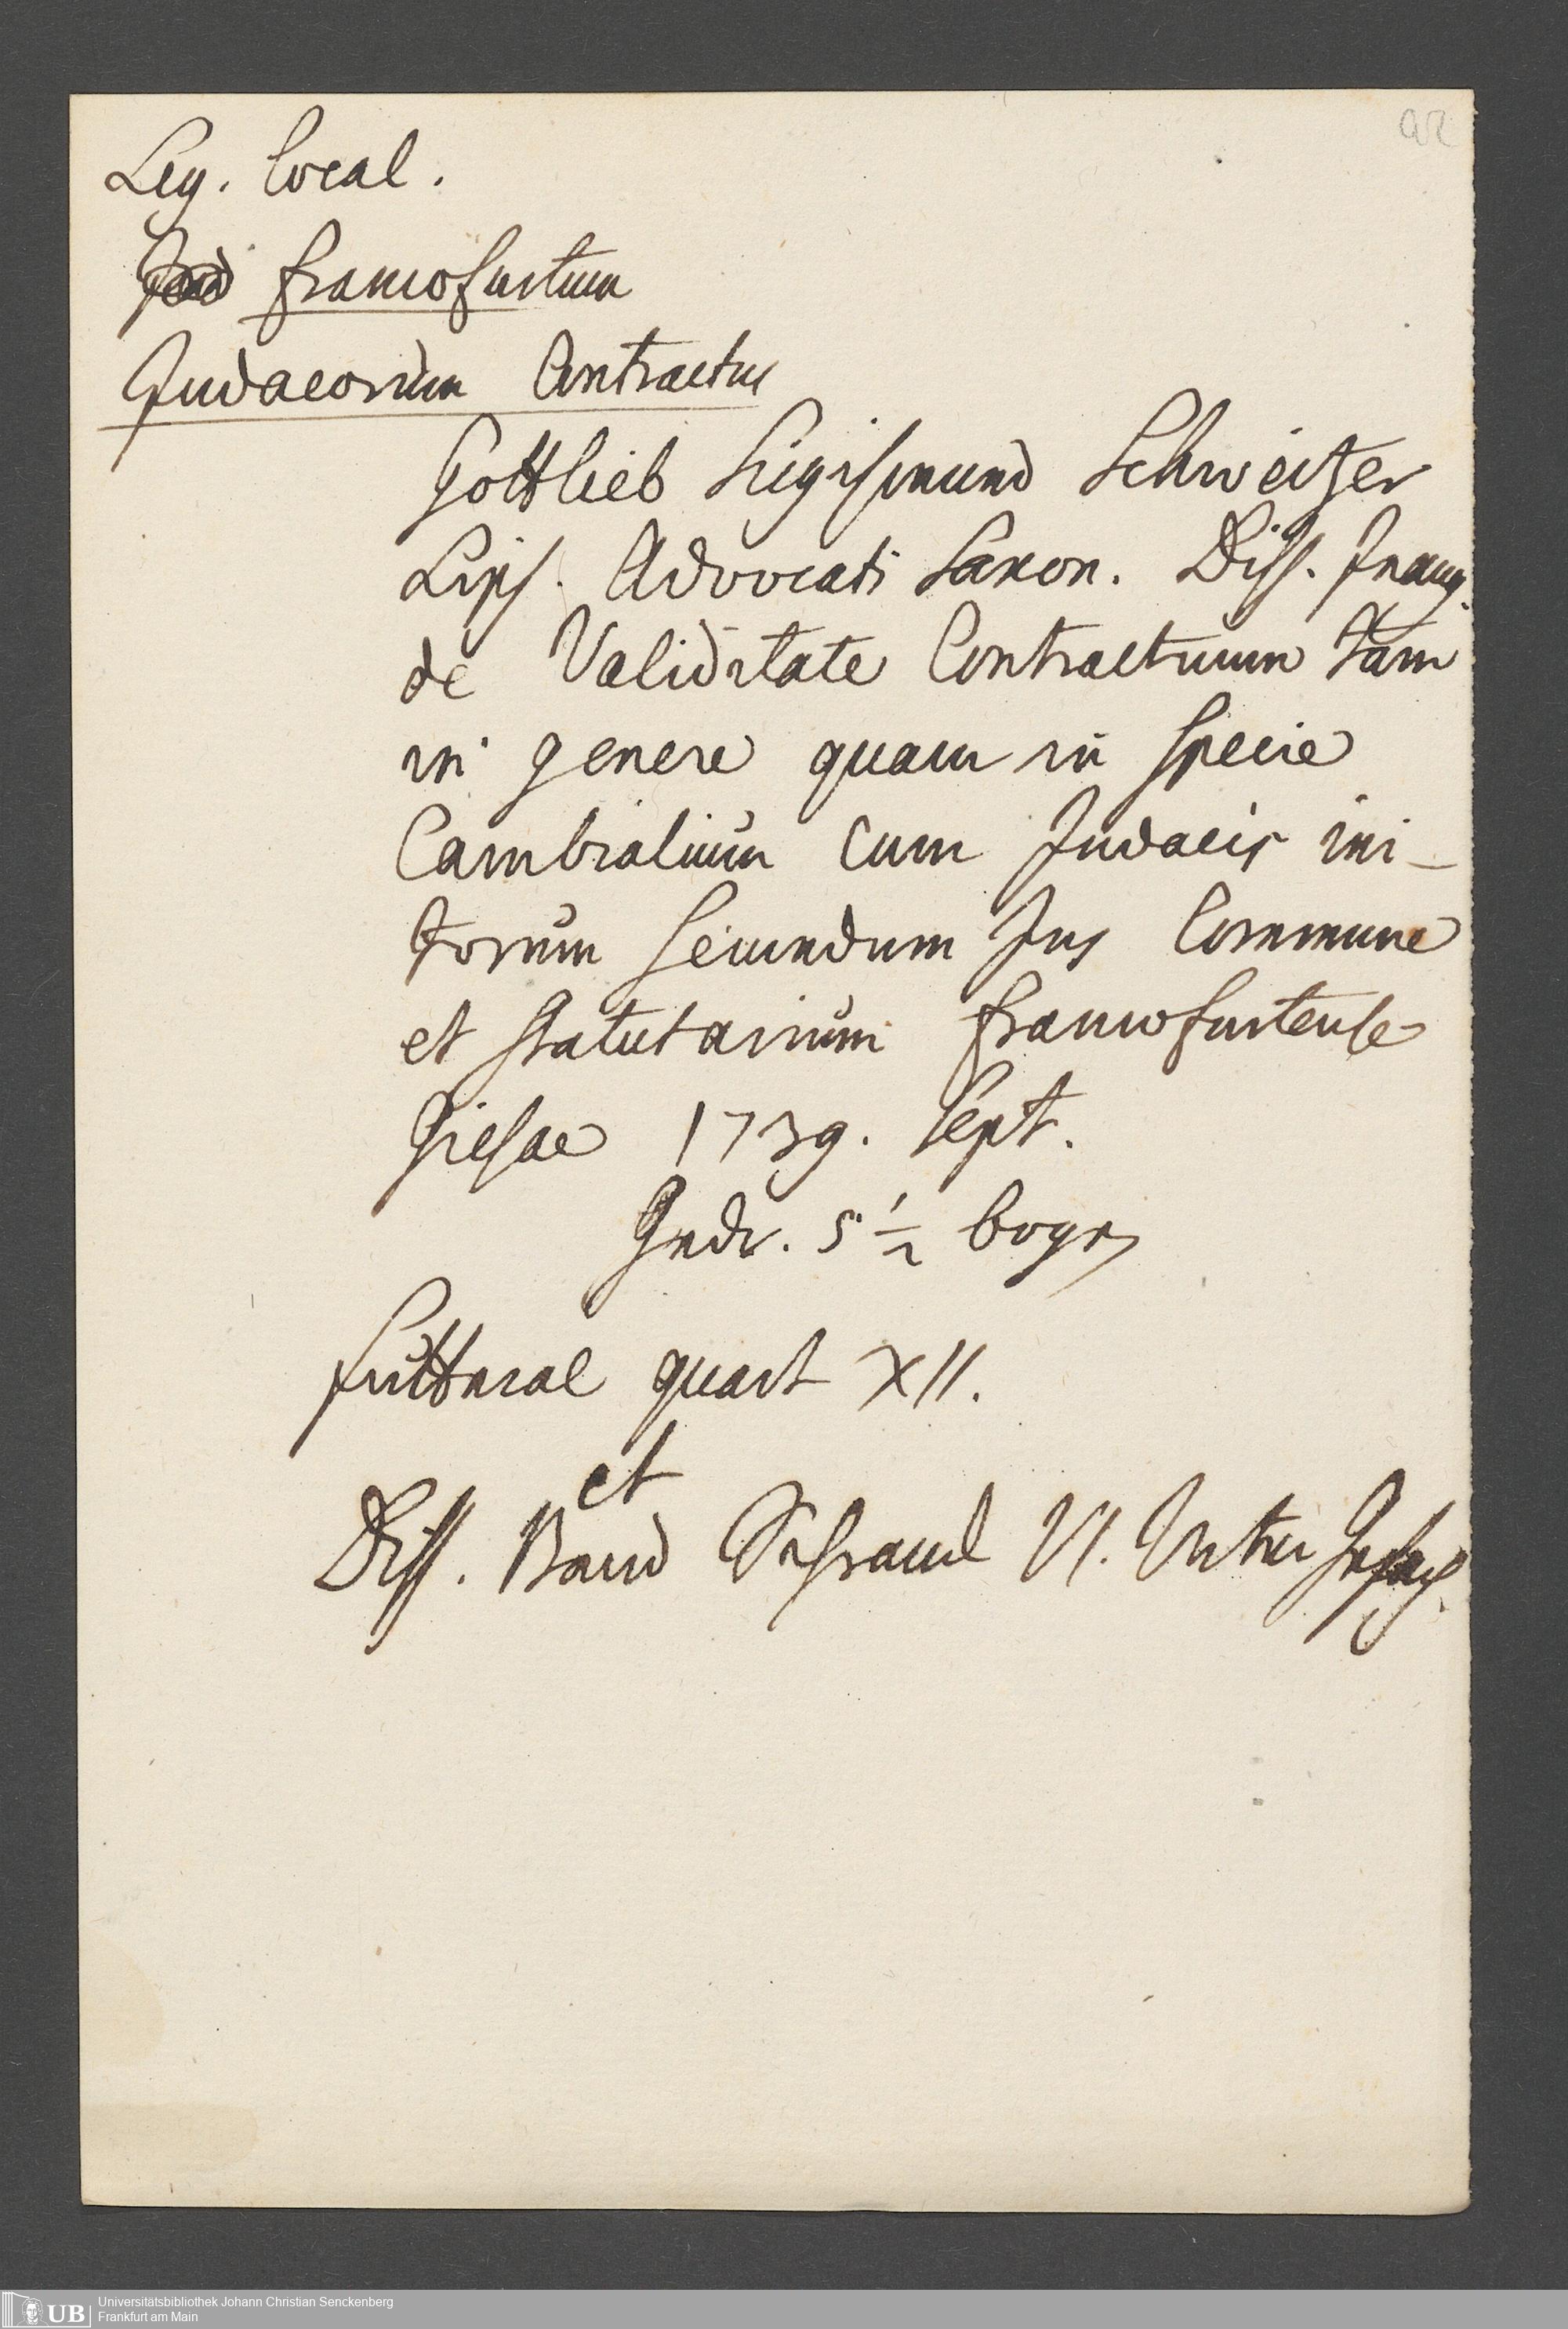 92
Leg. local.
Francofurtum
Judaeorum Contractus
Gottlieb Sigismund Schweitzer
Lips. Advocati Saxon. Diss. Inaug.
de Validitate Contractuum tam
in genere quam in specie
Cambialium cum Judaeis ini-
torum secundum Jus Commune
et statutarium Francofurtense
Giesae 1739. Sept.
Gedr. 5 1/2 bogen
Futteral quart XII.
et
Diss. Band VI. Unter
Universitätsbibliothek Johann Christian Senckenberg
UB Frankfurt am Main